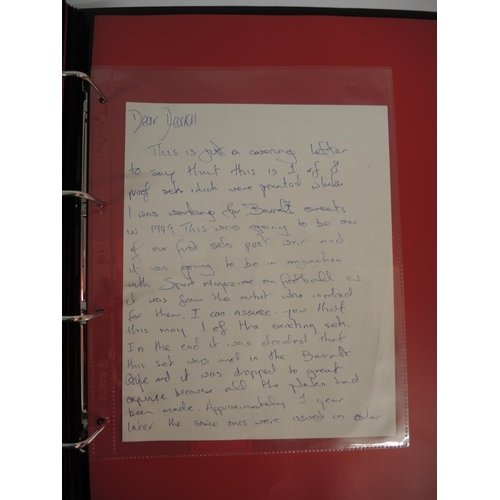 Dear
This is just a covering letter
to say that this is 1 of 8
proof sets which were printed whilst
I was working for Barratt sweets
in 1949 This was going to be one
of our first sets post war and
it was going to be in conjunction
with Sport magazine on football as
it was from the artist who worked
for them. I can assure you that
this may 1 of the existing sets.
In the end it was decided that
this set was not in the Barratt
style and it was dropped to great
expense because all the plates had
been made. Approximately 1 year
later the same ones were issued in